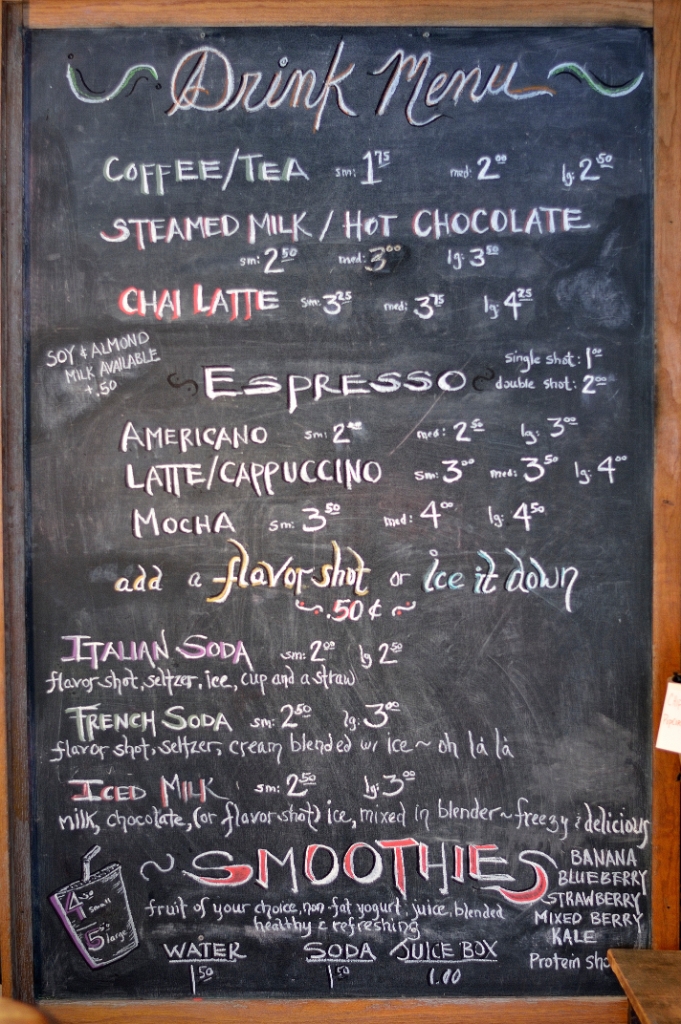 Drink Menu
COFFEE/TEA sm: 1.75 med: 2.00 lg: 2.50
STEAMED MILK / HOT CHOCOLATE
sm: 2.50 med: 3.00 lg: 3.50
CHAI LATTE sm: 3.25 med: 3.75 lg: 4.25
SOY & ALMOND
MILK AVAILABLE
+.50
ESPRESSO
single shot: 1.00
double shot: 2.00
AMERICANO sm: 2.00 med: 2.50 lg: 3.00
LATTE/CAPPUCCINO sm: 3.00 med: 3.50 lg: 4.00
MOCHA sm: 3.50 med: 4.00 lg: 4.50
add a flavor shot or ice it down
~ .50¢ ~
ITALIAN SODA sm: 2.00 lg 2.50
flavor shot, seltzer, ice, cup and a straw
FRENCH SODA sm: 2.50 lg: 3.00
flavor shot, seltzer, cream blended w/ ice ~ oh là là
ICED MILK sm: 2.50 lg: 3.00
milk, chocolate, (or flavor shot) ice, mixed in blender ~ freezy & delicious
~ SMOOTHIES
4.50 small
5.50 large
fruit of your choice, non fat yogurt, juice, blended
healthy & refreshing
BANANA
BLUEBERRY
STRAWBERRY
MIXED BERRY
KALE
Protein sho
WATER SODA JUICE BOX
1.50 1.50 1.00